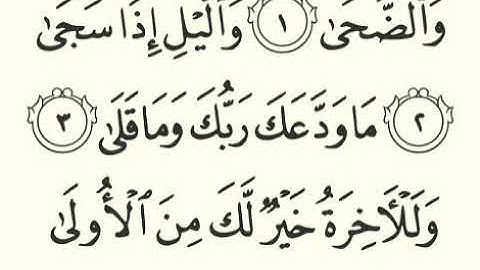 وَٱلضُّحَىٰ ١ وَٱلَّيْلِ إِذَا سَجَىٰ
٢ مَا وَدَّعَكَ رَبُّكَ وَمَا قَلَىٰ ٣
وَلَلْأَخِرَةُ خَيْرٌ لَّكَ مِنَ ٱلْأُولَىٰ